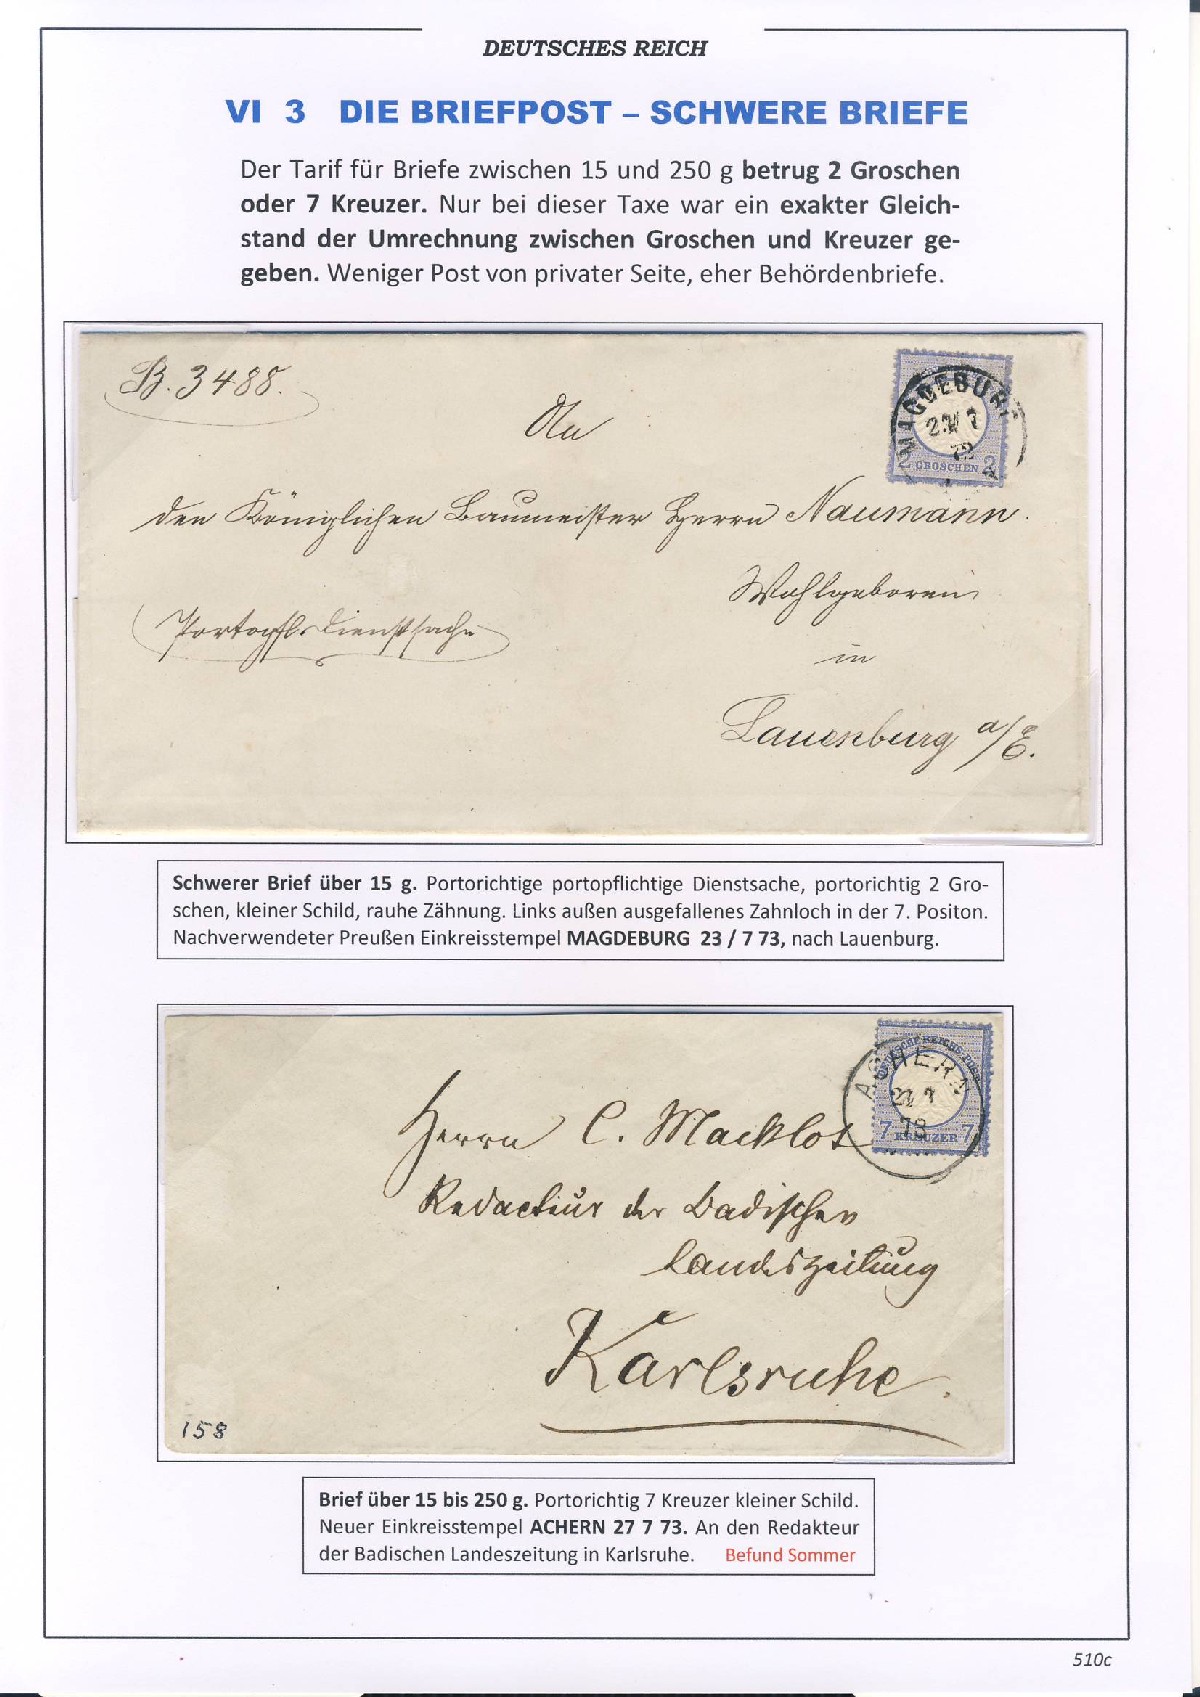 DEUTSCHES REICH
VI 3 DIE BRIEFPOST – SCHWERE BRIEFE
Der Tarif für Briefe zwischen 15 und 250 g betrug 2 Groschen
oder 7 Kreuzer. Nur bei dieser Taxe war ein exakter Gleich-
stand der Umrechnung zwischen Groschen und Kreuzer ge-
geben. Weniger Post von privater Seite, eher Behördenbriefe.
B. 3488.
MAGDEBURG
23/7
73
2 GROSCHEN 2
An
den Königlichen Baumeister Herrn Naumann.
Wohlgeboren
Portopfl. Dienstsache
in
Lauenburg a/E.
Schwerer Brief über 15 g. Portorichtige portopflichtige Dienstsache, portorichtig 2 Gro-
schen, kleiner Schild, rauhe Zähnung. Links außen ausgefallenes Zahnloch in der 7. Positon.
Nachverwendeter Preußen Einkreisstempel MAGDEBURG 23 / 7 73, nach Lauenburg.
DEUTSCHE REICHS-POST
ACHERN
27 7
73
7 KREUZER 7
Herrn C. Macklot
Redacteur der Badischen
Landeszeitung
Karlsruhe.
158
Brief über 15 bis 250 g. Portorichtig 7 Kreuzer kleiner Schild.
Neuer Einkreisstempel ACHERN 27 7 73. An den Redakteur
der Badischen Landeszeitung in Karlsruhe. Befund Sommer
510c